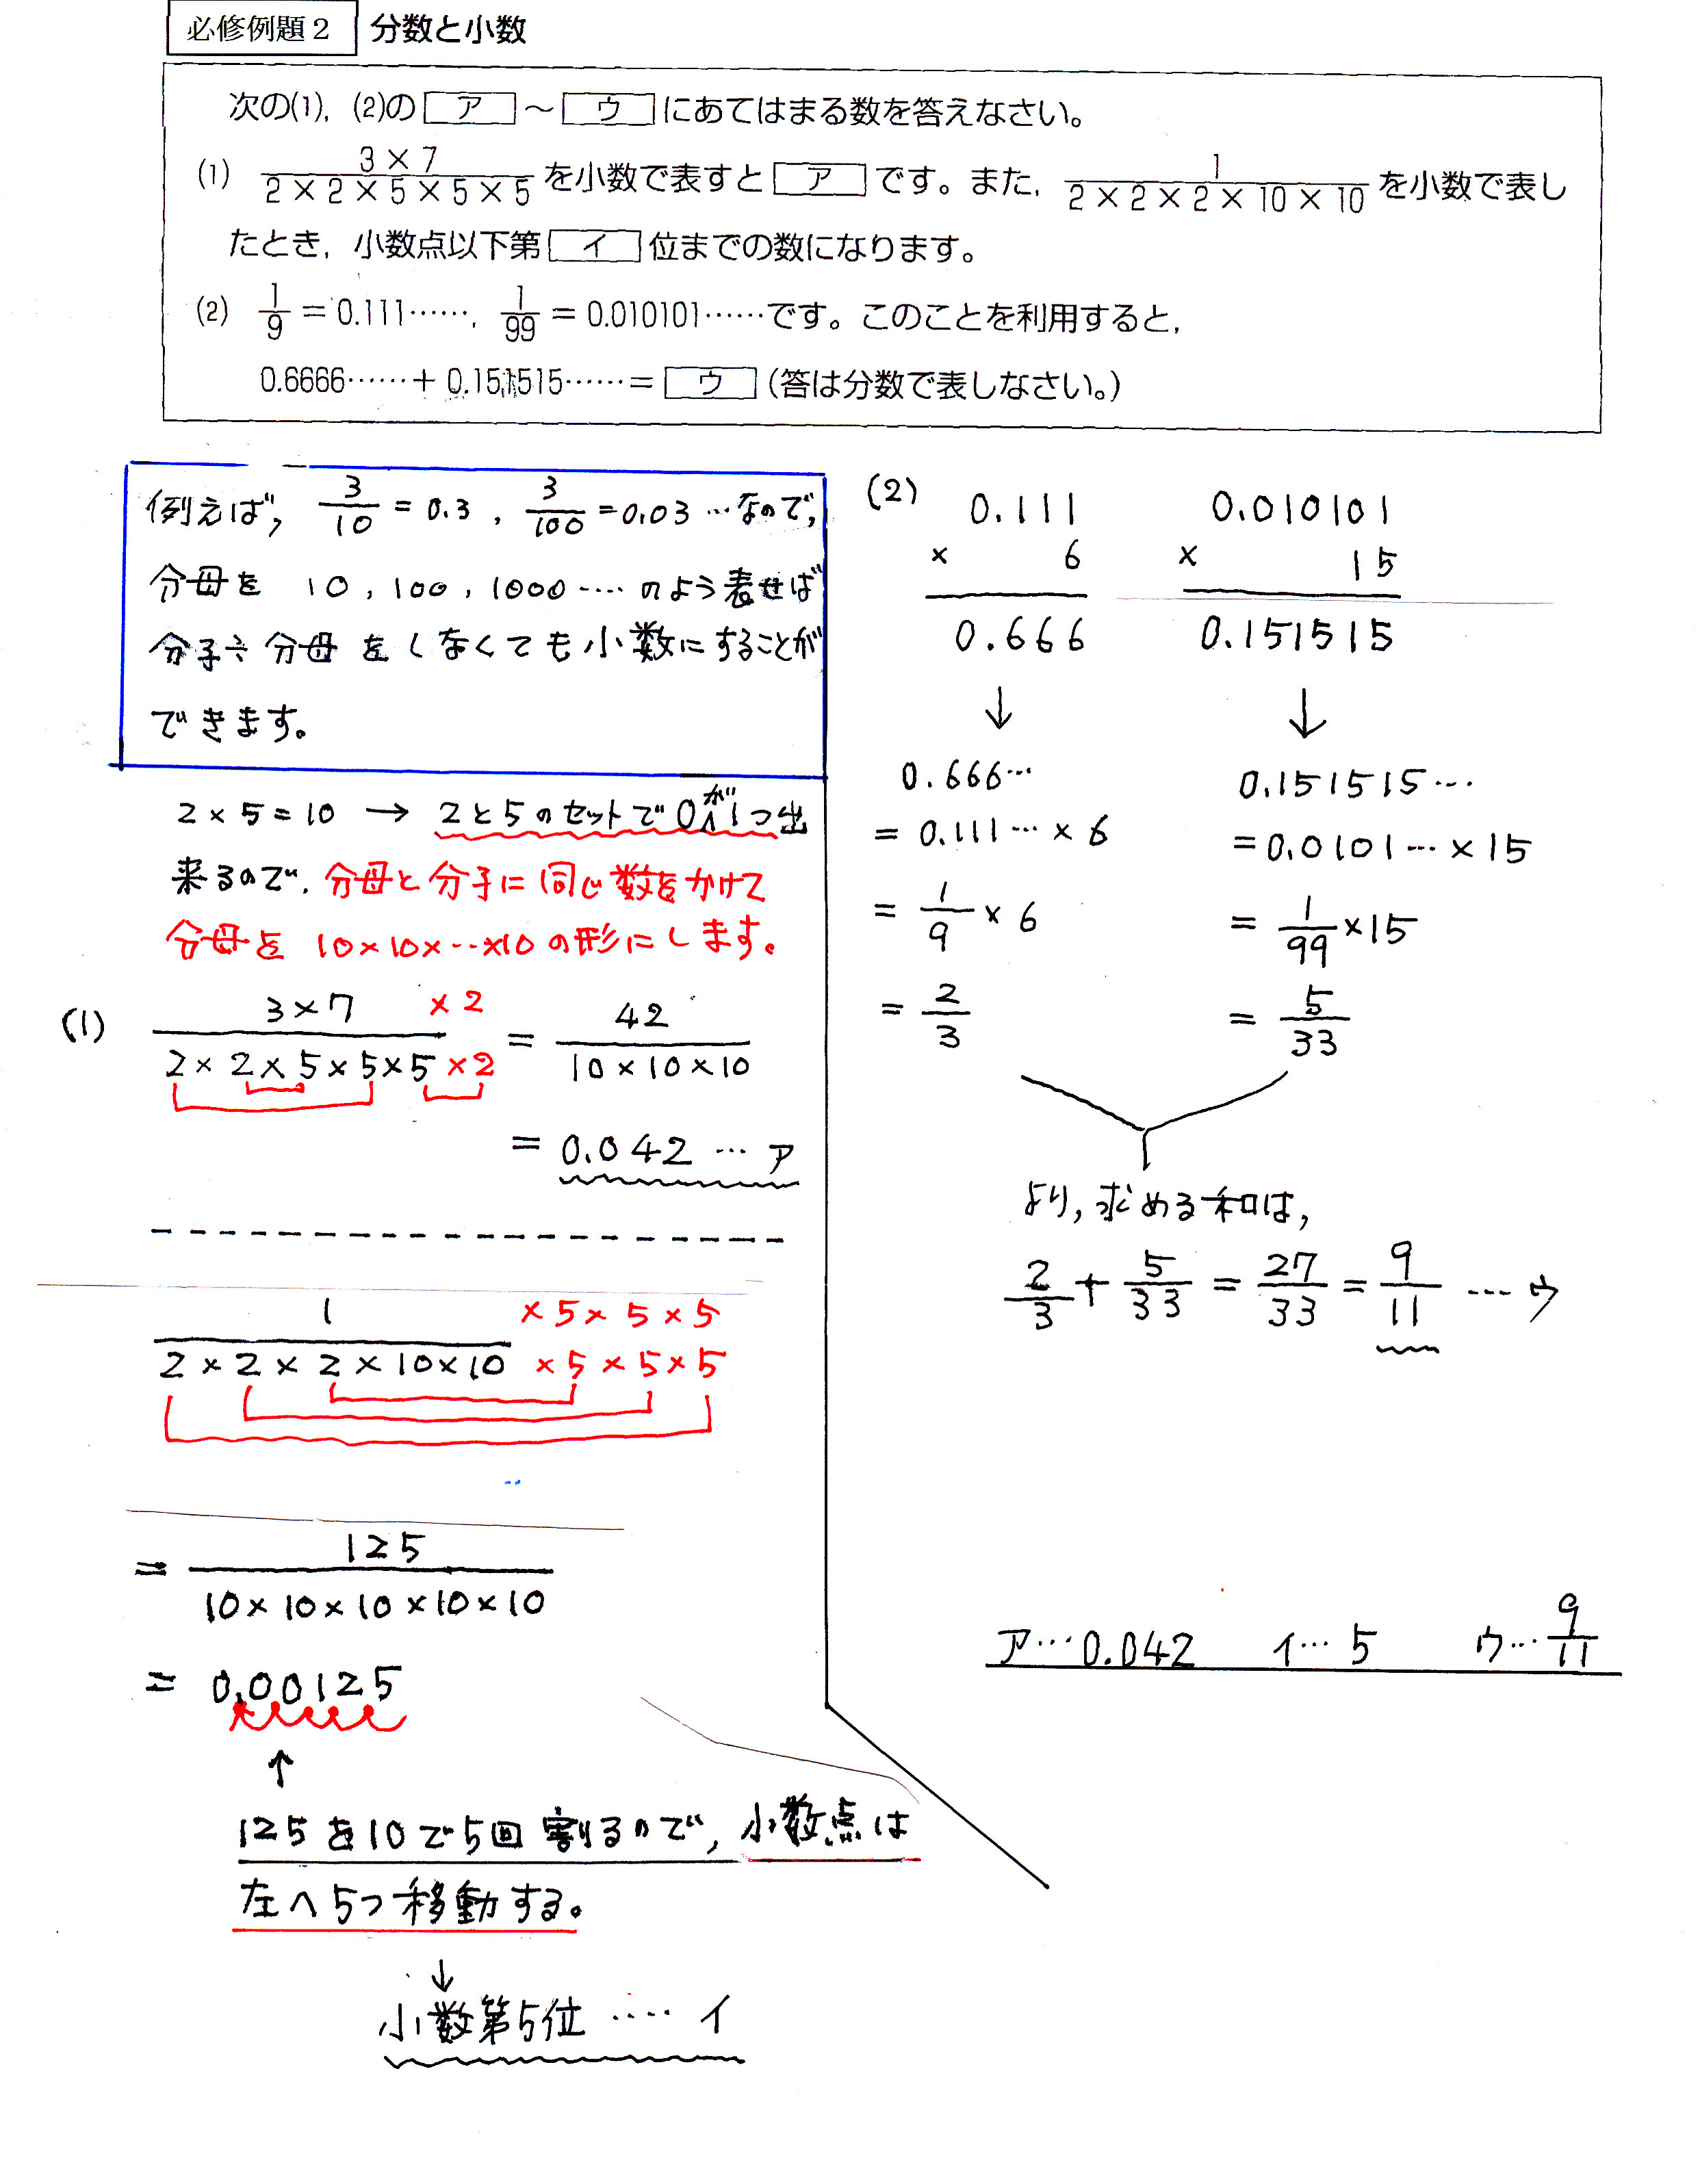 必修例題2 分数と小数
次の(1),(2)の ア ～ ウ にあてはまる数を答えなさい。
(1) 3×7/2×2×5×5×5 を小数で表すと ア です。また, 1/2×2×2×10×10 を小数で表し
たとき, 小数点以下第 イ 位までの数になります。
(2) 1/9 = 0.111……, 1/99 = 0.010101……です。このことを利用すると,
0.6666……+ 0.151515……= ウ (答は分数で表しなさい。)
例えば, 3/10 = 0.3 , 3/100 = 0.03 …なので,
分母を 10 , 100 , 1000 ……のよう表せば
分子÷分母 をしなくても小数にすることが
できます。
2×5=10 → 2と5のセットで0が1つ出
来るので, 分母と分子に同じ数をかけて
分母を 10×10×…×10 の形にします。
(1) 3×7 ×2/2×2×5×5×5 ×2 = 42/10×10×10
= 0.042 … ア
1 ×5×5×5/2×2×2×10×10 ×5×5×5
= 125/10×10×10×10×10
= 0.00125
↑
125を10で5回割るので, 小数点は
左へ5つ移動する。
↓
小数第5位 …… イ
(2) 0.111 0.010101
× 6 × 15
0.666 0.151515
↓ ↓
0.666… 0.151515…
= 0.111…×6 = 0.0101…×15
= 1/9×6 = 1/99×15
= 2/3 = 5/33
より, 求める和は,
2/3 + 5/33 = 27/33 = 9/11 … ウ
ア…0.042 イ…5 ウ…9/11